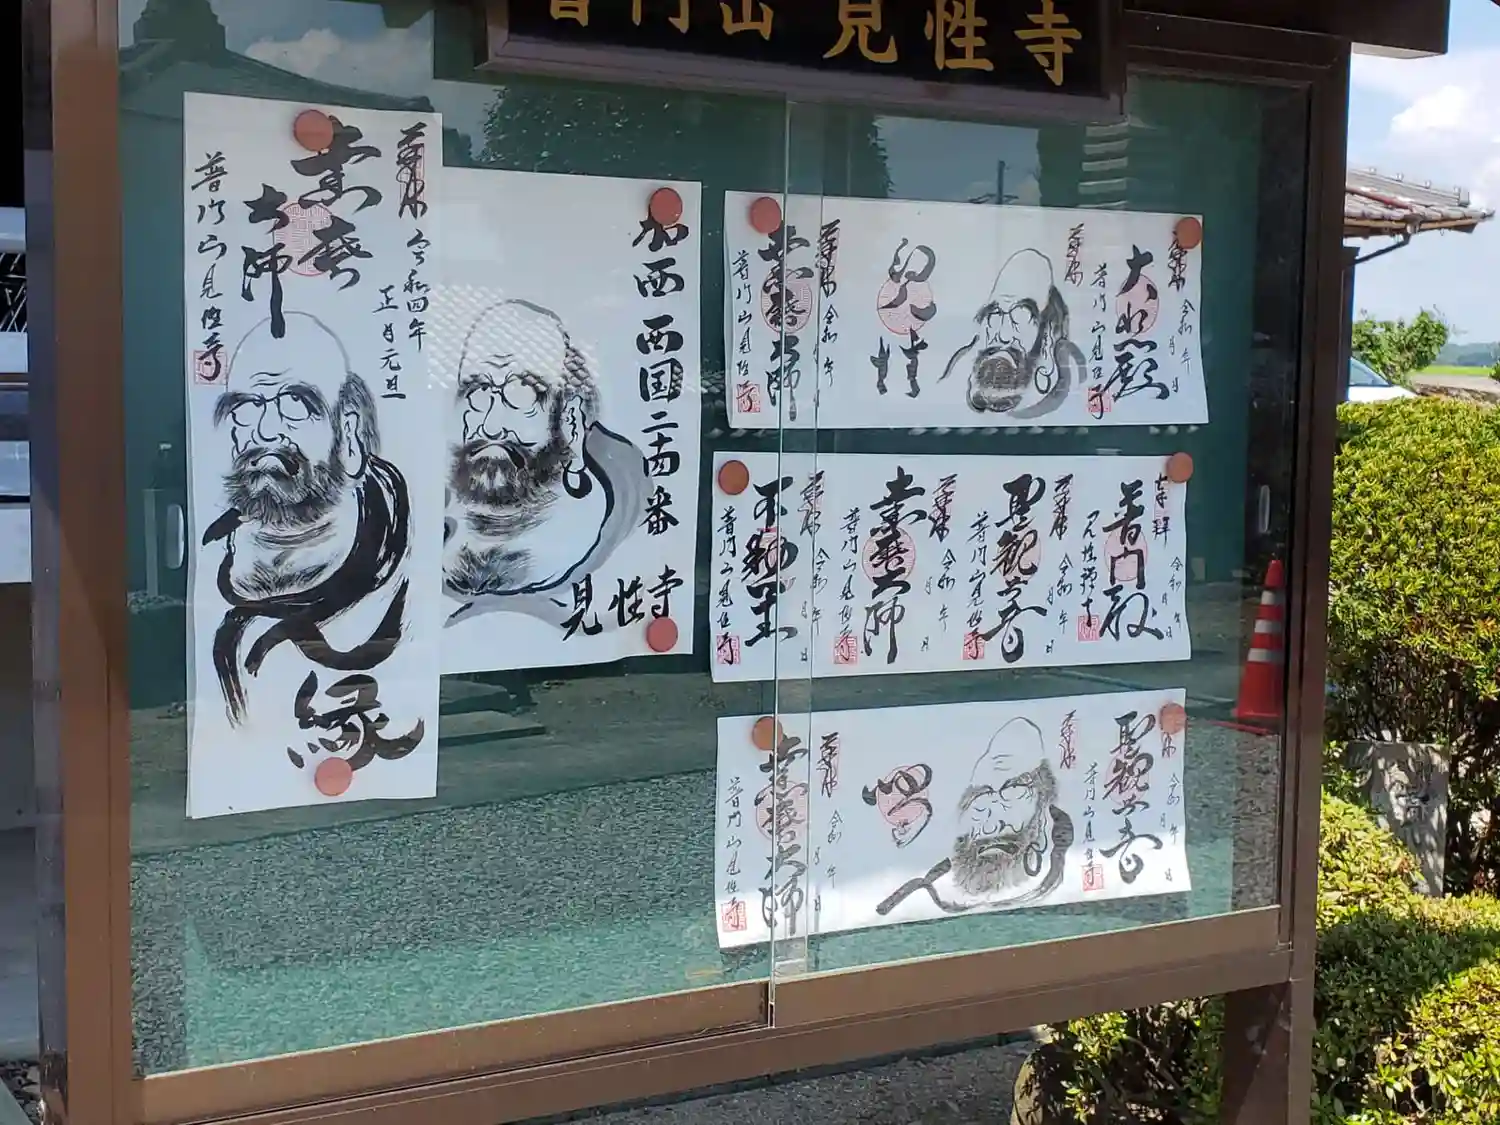 普門山 見性寺
奉拝
令和四年
正月元旦
達磨
大師
普門山見性寺
縁
加西西国二十四番
見性寺
奉拝
大悲殿
普門山見性寺
見性
奉拝 令和 年 月 日
達磨大師
普門山見性寺
奉拝 令和 年 月 日
普門殿
見性禅寺
奉拝 令和 年 月 日
聖観世音
普門山見性寺
奉拝 令和 年 月 日
達磨大師
普門山見性寺
奉拝 令和 年 月 日
不動尊
普門山見性寺
奉拝 令和 年 月 日
聖観世音
普門山見性寺
奉拝 令和 年 月 日
達磨大師
普門山見性寺